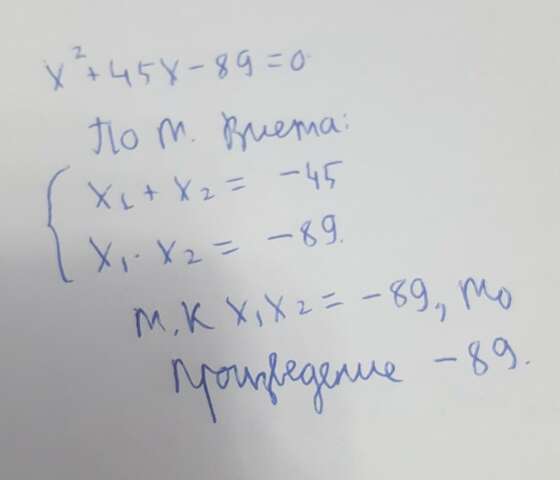 x² + 45x − 89 = 0
По т. Виета:
x₁ + x₂ = −45
x₁ · x₂ = −89.
т.к x₁x₂ = −89, то
произведение −89.